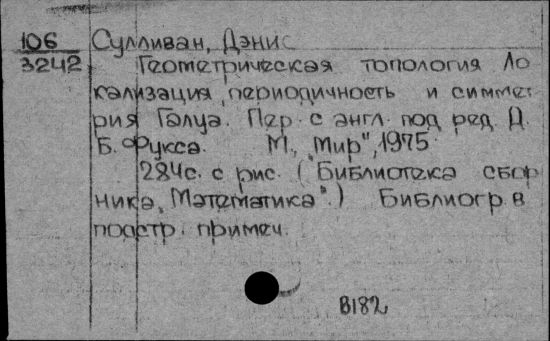 106 Сулливан, Дэнис
3242 Геометрическая топология Ло
кализация, периодичность и симмет
рия Галуа. Пер. с англ. под ред. Д.
Б. Фукса. М., "Мир", 1975
284с. с рис. (Библиотека сбор
ника "Математика".) Библиогр. в
подстр. примеч.
В182